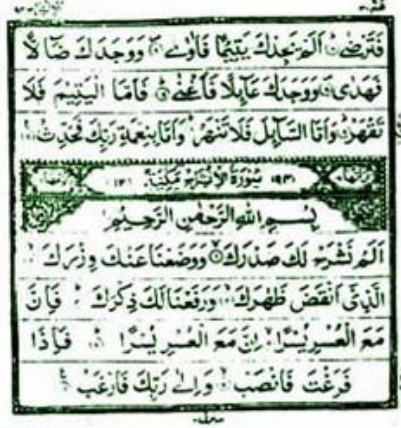 فَتَرْضٰى اَلَمْ يَجِدْكَ يَتِيْمًا فَاٰوٰى وَوَجَدَكَ ضَآلًّا
فَهَدٰى وَوَجَدَكَ عَآئِلًا فَاَغْنٰى فَاَمَّا الْيَتِيْمَ فَلَا
تَقْهَرْ وَاَمَّا السَّآئِلَ فَلَا تَنْهَرْ وَاَمَّا بِنِعْمَةِ رَبِّكَ فَحَدِّثْ
(٩٣) سُوْرَةُ الْاِنْشِرَاحِ مَكِّيَّةٌ (١٢)
بِسْمِ اللهِ الرَّحْمٰنِ الرَّحِيْمِ
اَلَمْ نَشْرَحْ لَكَ صَدْرَكَ وَوَضَعْنَا عَنْكَ وِزْرَكَ
الَّذِيْٓ اَنْقَضَ ظَهْرَكَ وَرَفَعْنَا لَكَ ذِكْرَكَ فَاِنَّ
مَعَ الْعُسْرِ يُسْرًا اِنَّ مَعَ الْعُسْرِ يُسْرًا فَاِذَا
فَرَغْتَ فَانْصَبْ وَاِلٰى رَبِّكَ فَارْغَبْ